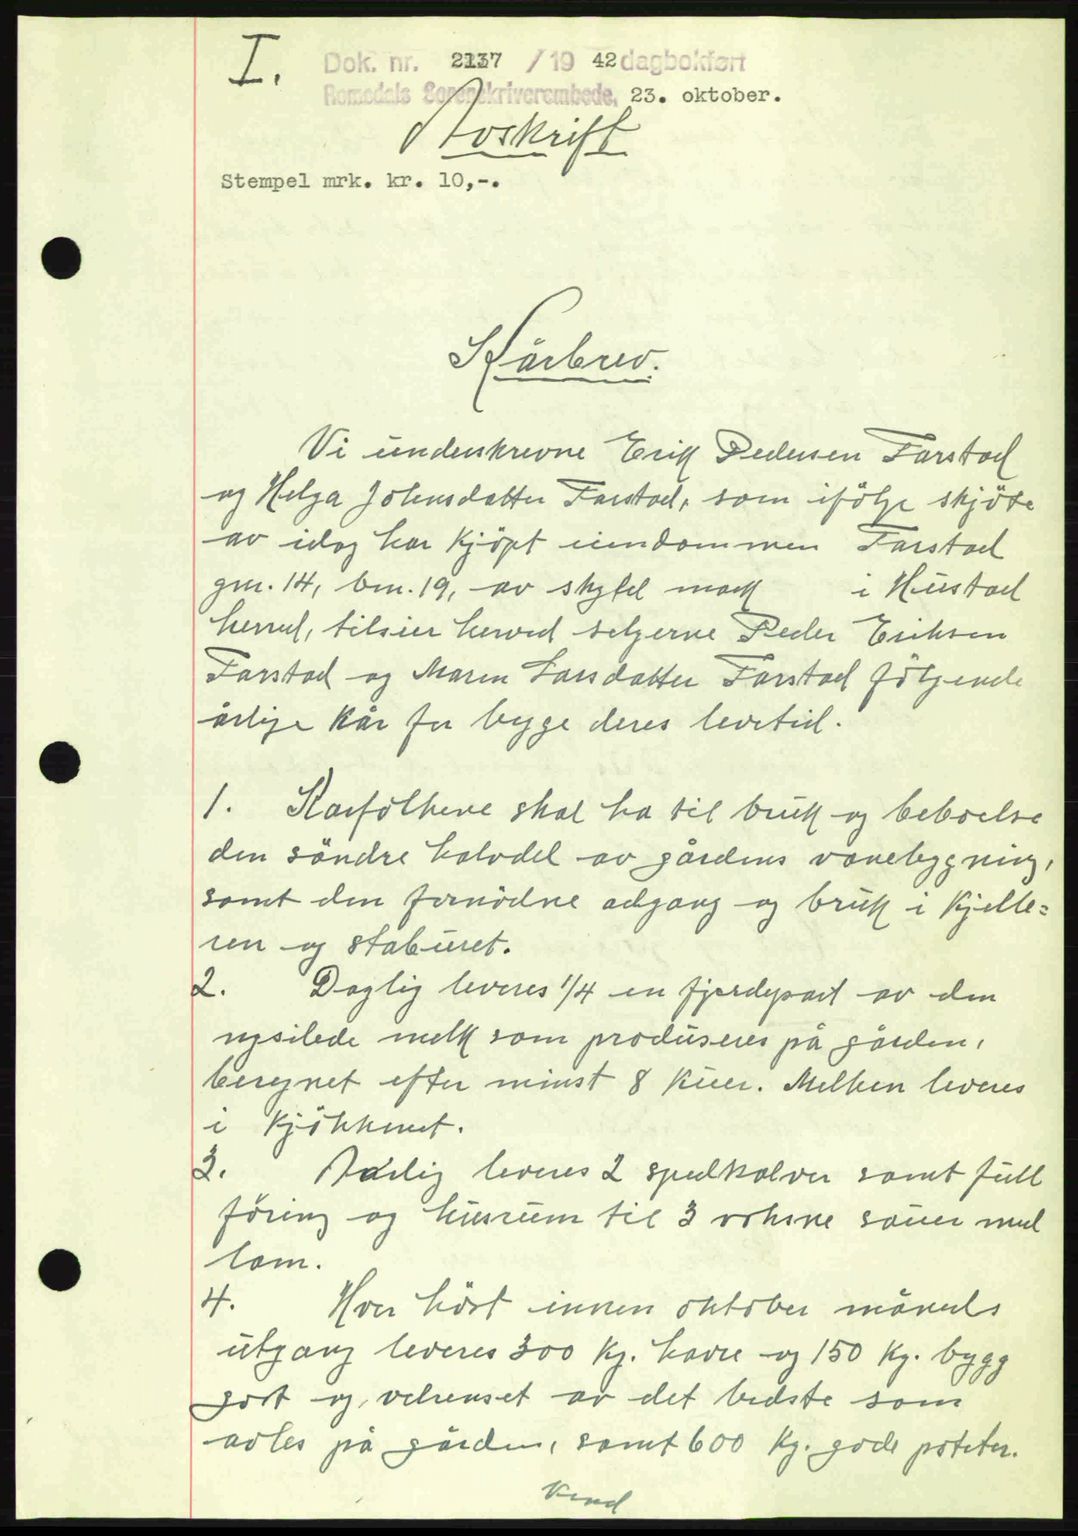 I.
Dok. nr. 2137 / 19 42 dagbokført
Romsdals Sorenskriverembede, 23. oktober.
Avskrift
Stempel mrk. kr. 10,-.
Kårbrev.
Vi underskrevne Erik Pedersen Farstad
og Helga Johnsdatter Farstad, som ifölge skjöte
av idag har kjöpt eiendommen Farstad
gnr. 14, bnr. 19, av skyld mark i Hustad
herred, tilsier herved selgerne Peder Eriksen
Farstad og Maren Larsdatter Farstad fölgende
årlige kår for begge deres levetid.
1. Kårfolkene skal ha til bruk og beboelse
den söndre halvdel av gårdens vånebygning,
samt den fornödne adgang og bruk i kjelle=
ren og staburet.
2. Daglig leveres 1/4 en fjerdepart av den
nysilede melk som produseres på gården,
beregnet efter minst 8 kuer. Melken leveres
i kjökkenet.
3. Årlig leveres 2 spedkalver samt full
föring og husrum til 3 voksne sauer med
lam.
4. Hver höst innen oktober måneds
utgang leveres 300 kg. havre og 150 kg. bygg
tört og velrenset av det bedste som
avles på gården, samt 600 kg. gode poteter.
Vend